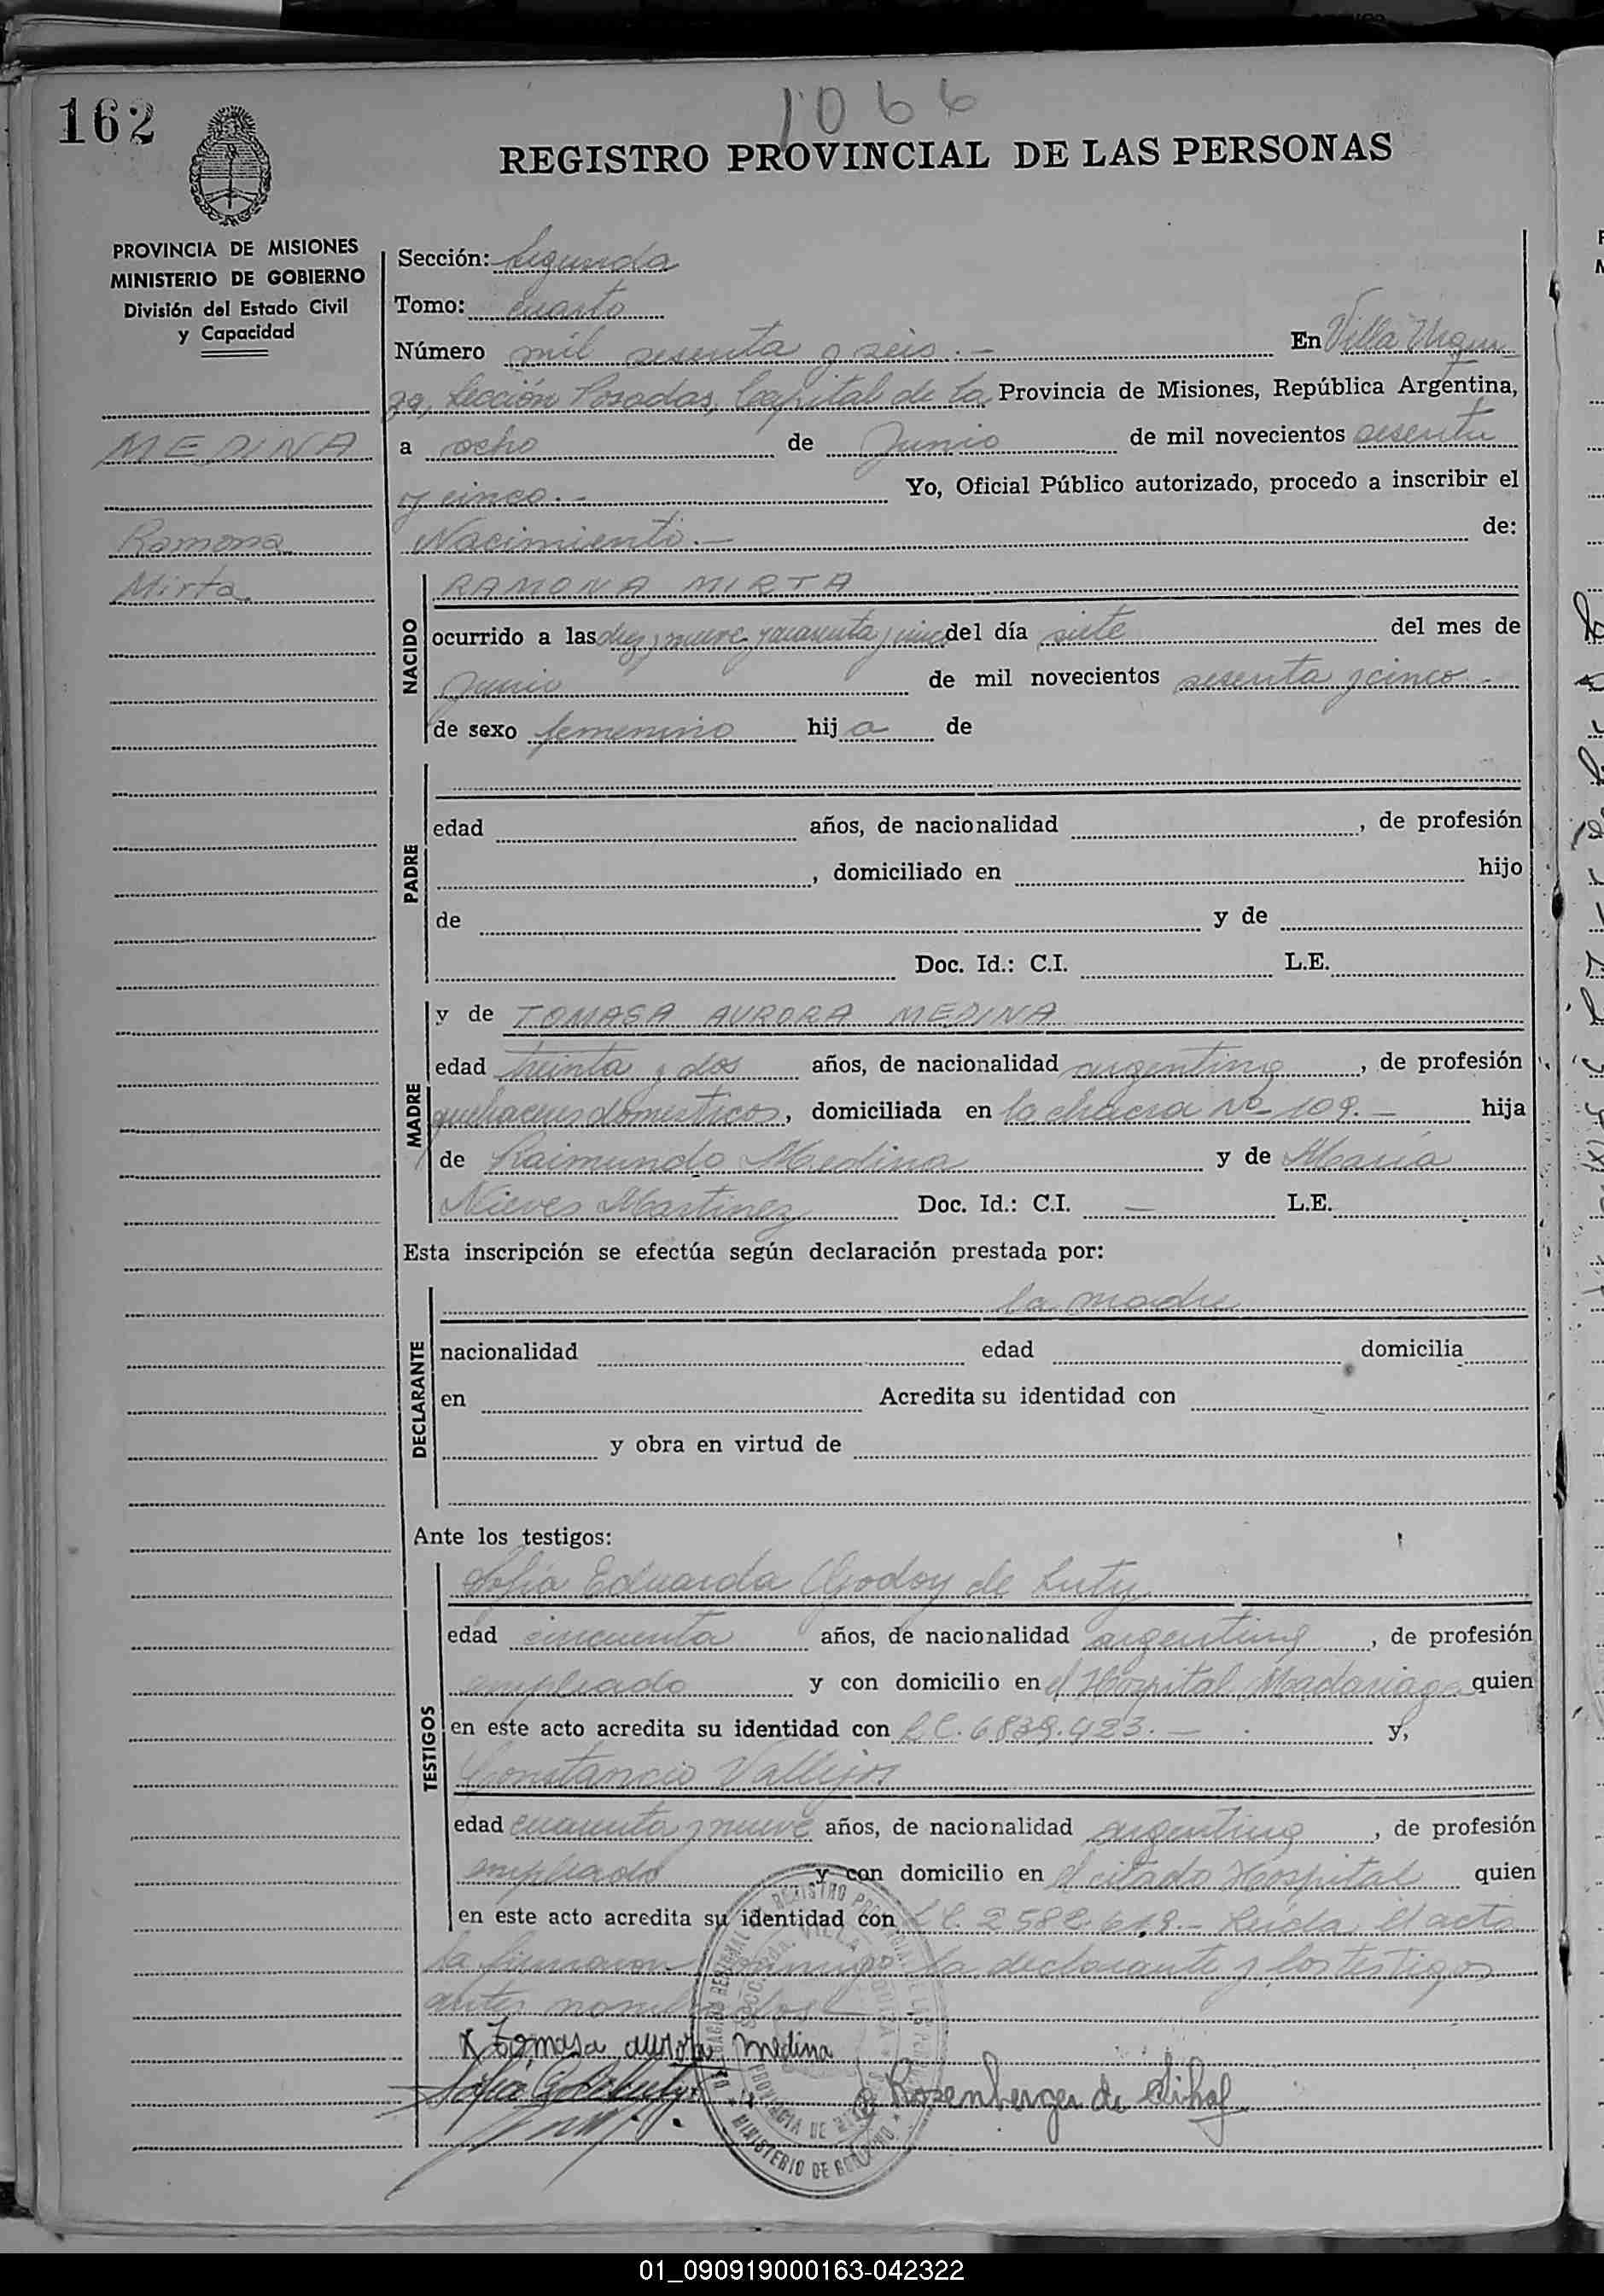 162
1066
REGISTRO PROVINCIAL DE LAS PERSONAS
PROVINCIA DE MISIONES
MINISTERIO DE GOBIERNO
División del Estado Civil
y Capacidad
MEDINA
Ramona
Mirta
Sección: Segunda
Tomo: cuarto
Número mil sesenta y seis.- En Villa Urqui
za, Sección Posadas, Capital de la Provincia de Misiones, República Argentina,
a ocho de Junio de mil novecientos sesenta
y cinco.- Yo, Oficial Público autorizado, procedo a inscribir el
Nacimiento.- de:
NACIDO
RAMONA MIRTA
ocurrido a las diez y nueve y cuarenta y cinco del día siete del mes de
Junio de mil novecientos sesenta y cinco -
de sexo femenino hij a de
PADRE
edad años, de nacionalidad , de profesión
, domiciliado en hijo
de y de
Doc. Id.: C.I. L.E.
MADRE
y de TOMASA AURORA MEDINA
edad treinta y dos años, de nacionalidad argentina, de profesión
quehaceres domesticos, domiciliada en la chacra Nº 109.- hija
de Raimundo Medina y de María
Nieves Martinez Doc. Id.: C.I. — L.E.
Esta inscripción se efectúa según declaración prestada por:
DECLARANTE
la madre
nacionalidad edad domicilia
en Acredita su identidad con
y obra en virtud de
Ante los testigos:
TESTIGOS
Sofia Eduarda Godoy de Luty
edad cincuenta años, de nacionalidad argentina, de profesión
empleado y con domicilio en el Hospital Madariaga quien
en este acto acredita su identidad con L.C. 6.839.423.- y,
Constancio Vallejos
edad cuarenta y nueve años, de nacionalidad argentino, de profesión
empleado y con domicilio en el citado Hospital quien
en este acto acredita su identidad con Leída el acta
la firmaron conmigo la declarante y los testigos
antes nombrados
x tomasa aurora medina
Rosenberger de
REGISTRO PROVINCIAL DE LAS PERSONAS
DELEGACION REGIONAL
VILLA URQUIZA
PROVINCIA DE MISIONES
MINISTERIO DE GOBIERNO
01_090919000163-042322